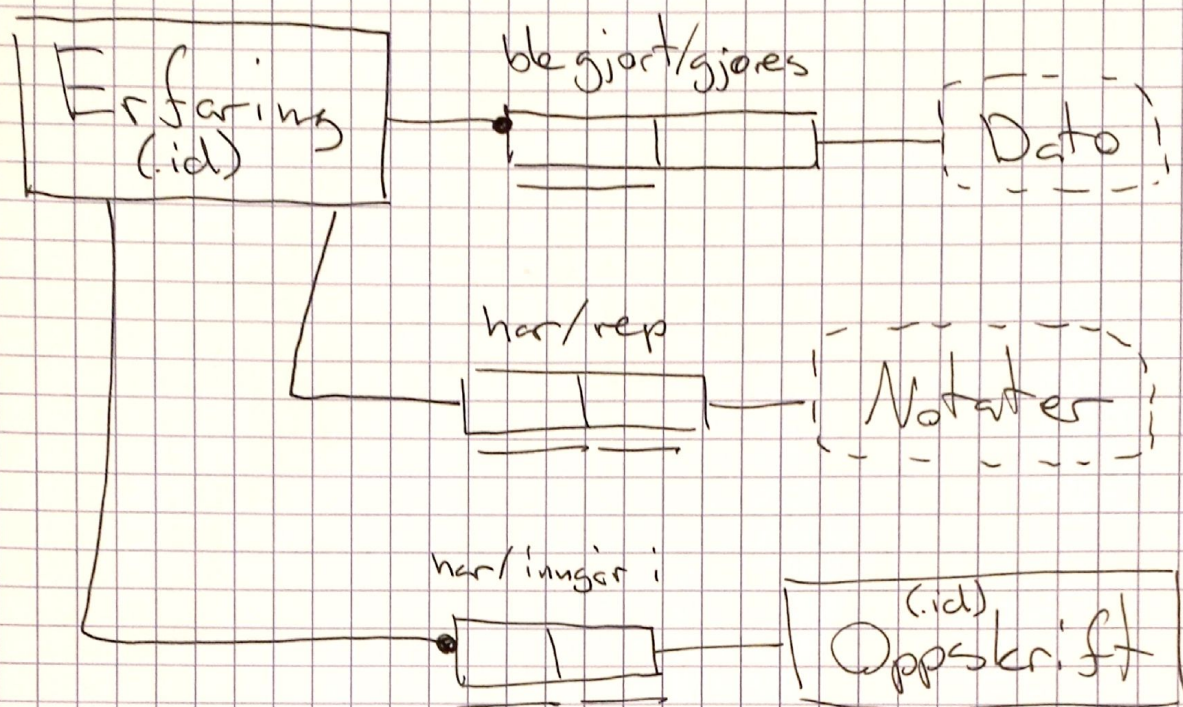 Erfaring
(.id)
ble gjort/gjøres
Dato
har/rep
Notater
har/inngår i
(.id)
Oppskrift